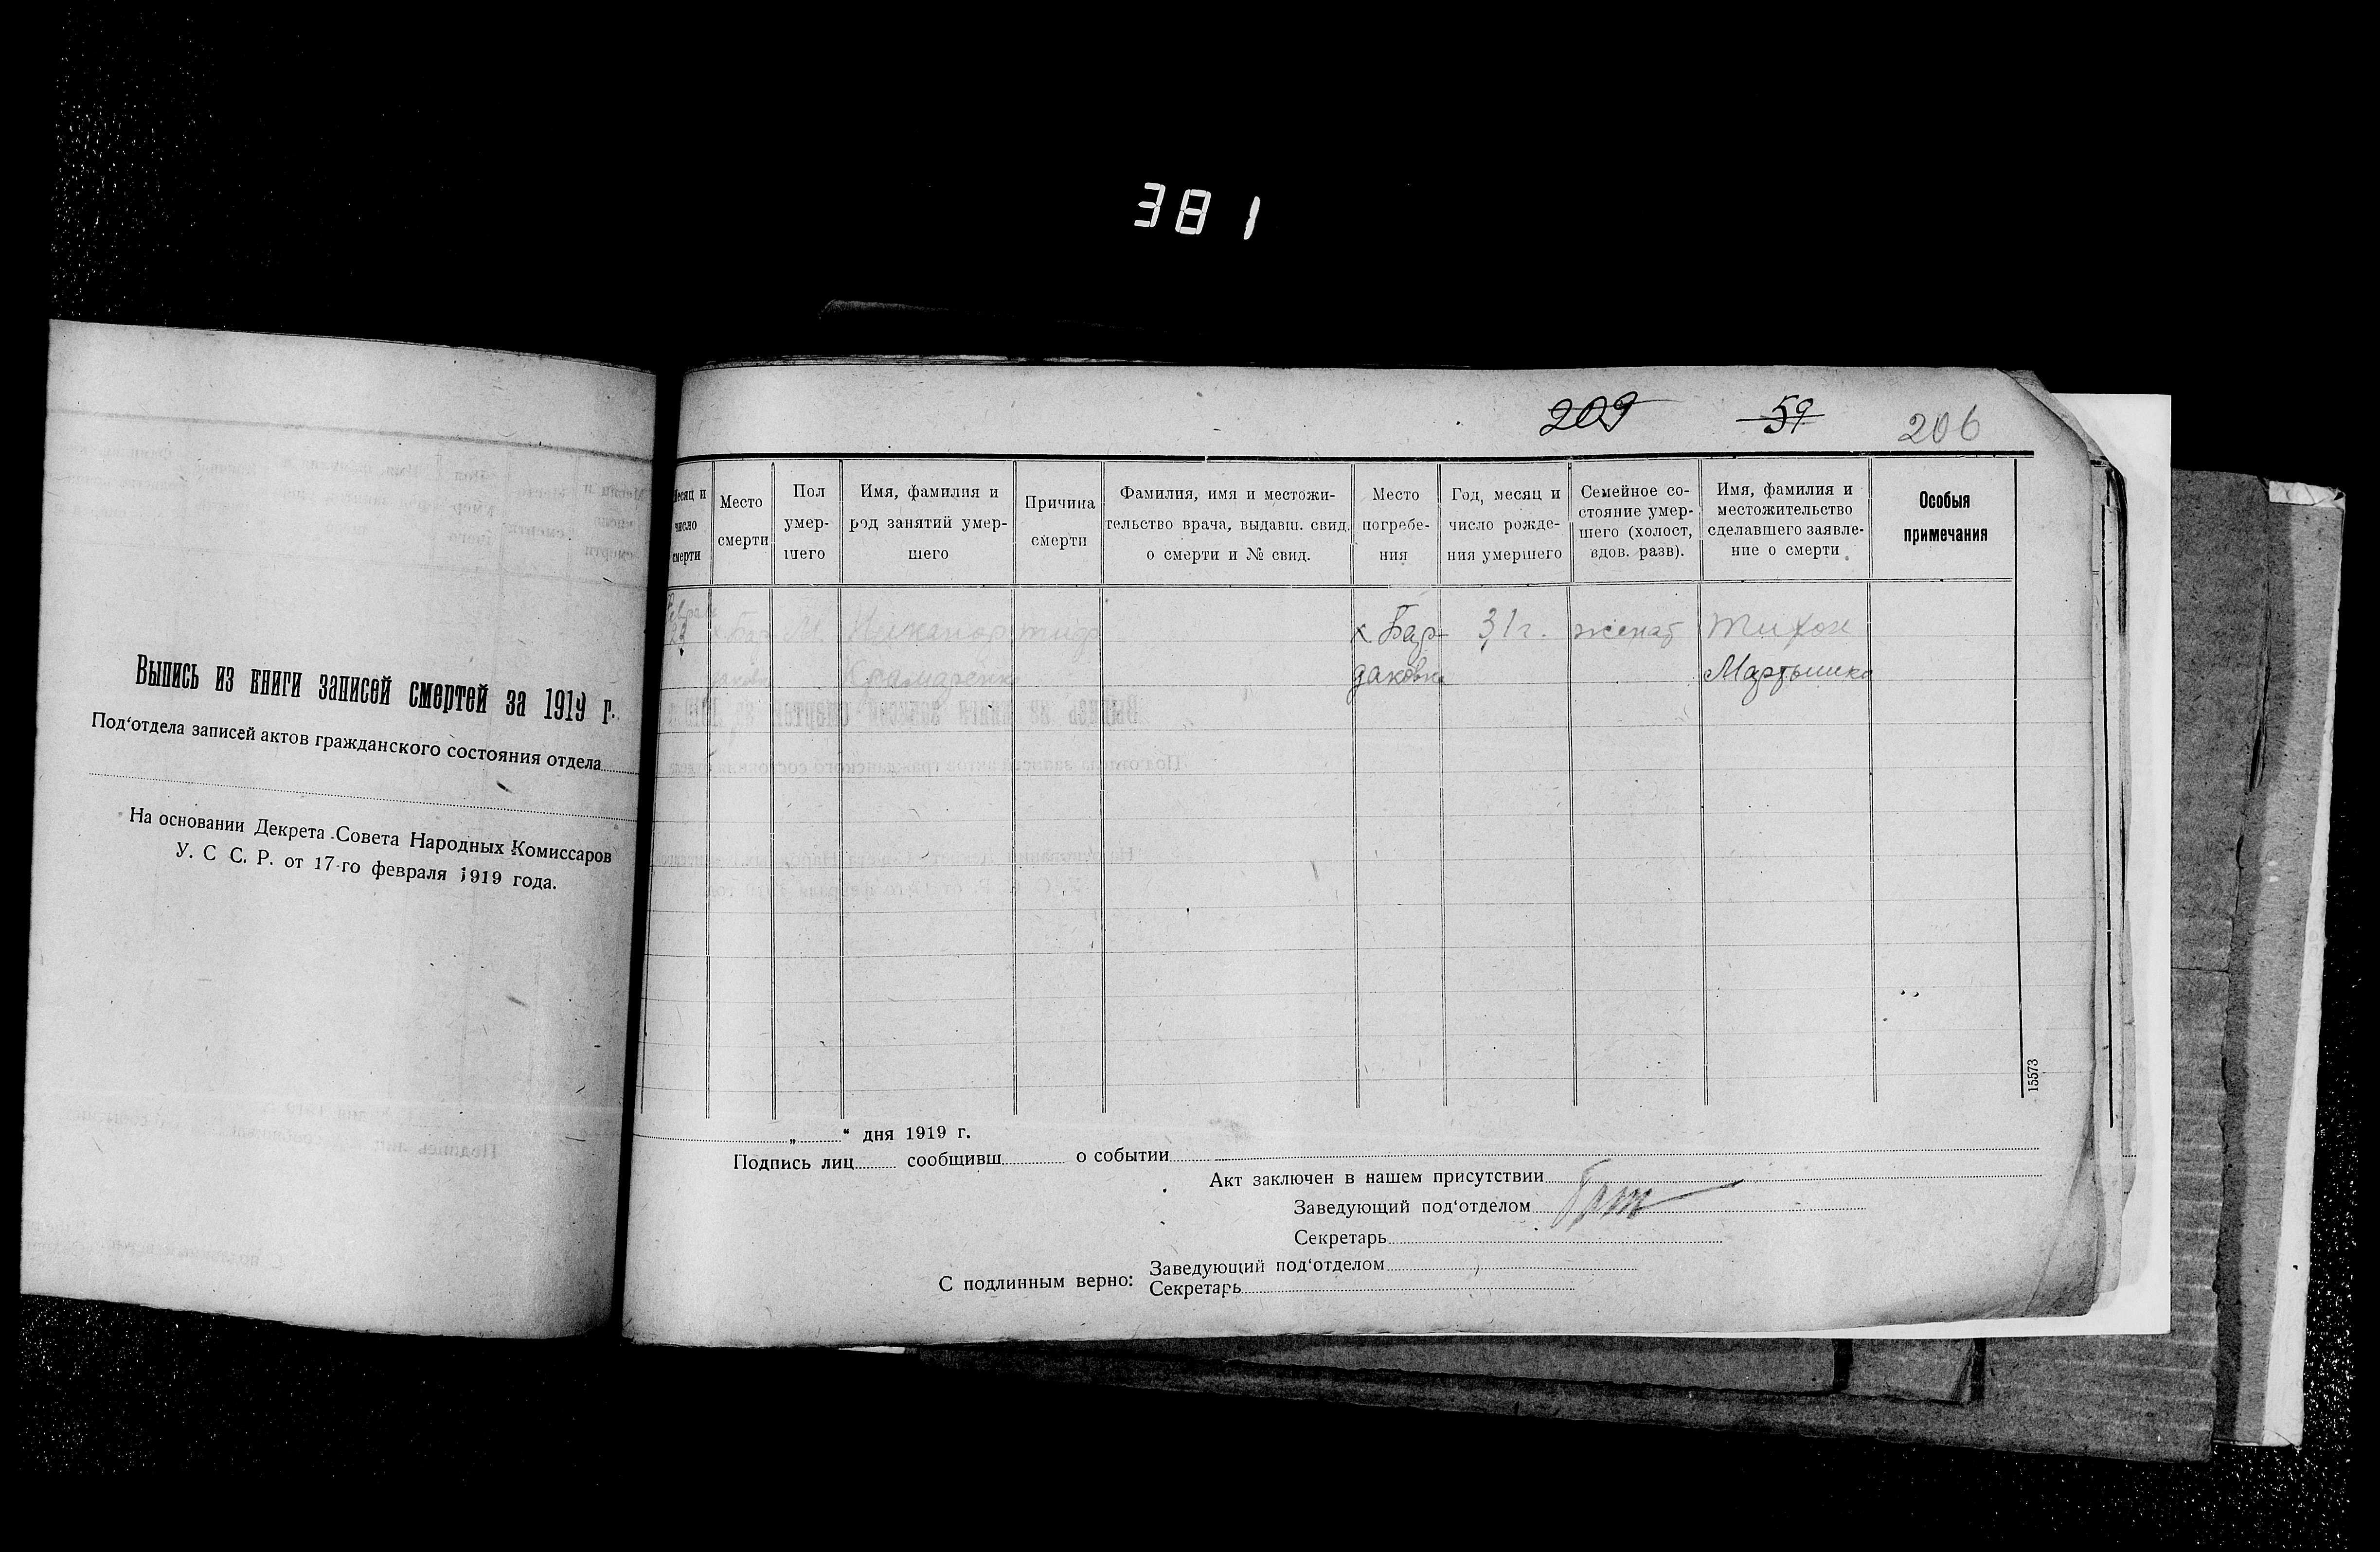 381
Выпись из книги записей смертей за 1919 г.
Под‘отдела записей актов гражданского состояния отдела
На основании Декрета Совета Народных Комиссаров
У. С С. Р. от 17-го февраля 1919 года.
209 59 206
Месяц и число смерти
Место смерти
Пол умер-
шего
Имя, фамилия и
род занятий умер-
шего
Причина
смерти
Фамилия, имя и местожи-
тельство врача, выдавш. свид.
о смерти и № свид.
Место
погребе-
ния
Год, месяц и
число рожде-
ния умершего
Семейное со-
стояние умер-
шего (холост,
вдов. разв).
Имя, фамилия и
местожительство
сделавшего заявле-
ние о смерти
Особыя
примечания
23 х Бар М. Никанор тиф х Бар- 31 г. женат Тихон
даковка Крамаренко даковка Мартынико
15573
„ “ дня 1919 г.
Подпись лиц сообщивш о событии
Акт заключен в нашем присутствии
Заведующий под‘отделом
Секретарь
С подлинным верно:
Заведующий под‘отделом
Секретарь